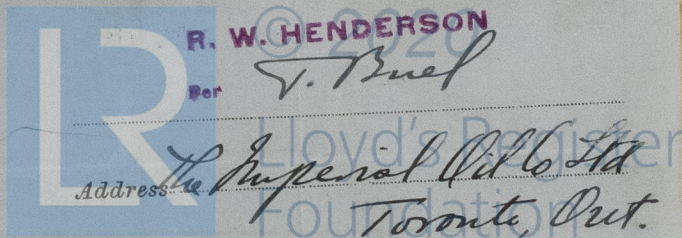 R. W. HENDERSON
Per T. Buel
Address The Imperial Oil Co Ltd
Toronto, Ont.
LR
© 2020
Lloyd's Register
Foundation